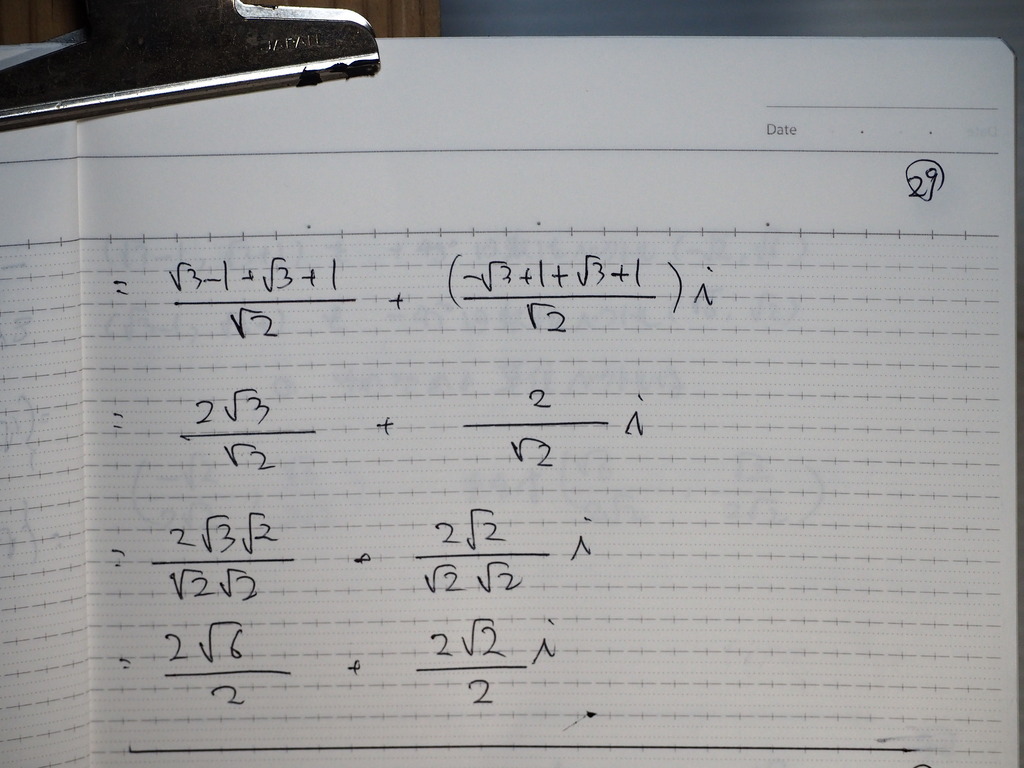 JAPAN
Date
29
= (√3-1+√3+1)/√2 + ((-√3+1+√3+1)/√2) i
= 2√3/√2 + 2/√2 i
= 2√3√2/√2√2 + 2√2/√2√2 i
= 2√6/2 + 2√2/2 i